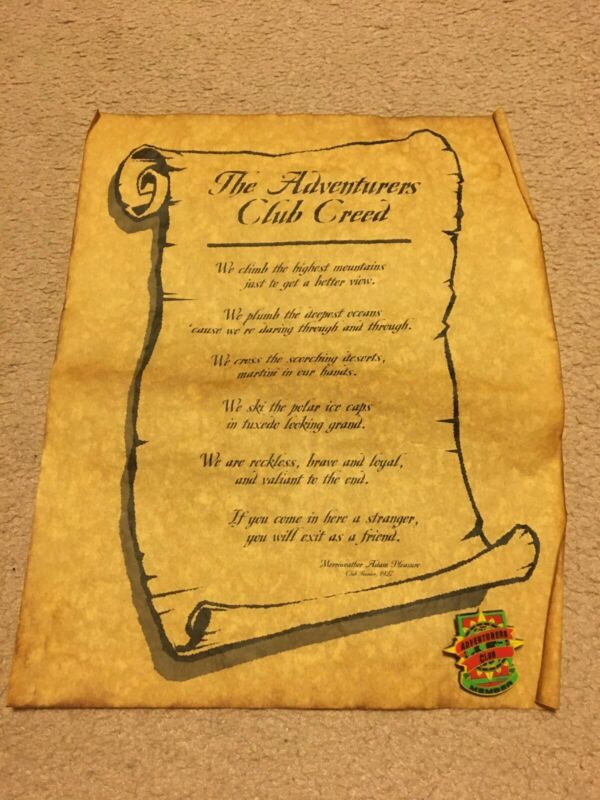 The Adventurers
Club Creed
We climb the highest mountains
just to get a better view.
We plumb the deepest oceans
'cause we're daring through and through.
We cross the scorching deserts,
martini in our hands.
We ski the polar ice caps
in tuxedo looking grand.
We are reckless, brave and loyal,
and valiant to the end.
If you come in here a stranger,
you will exit as a friend.
Merriweather Adam Pleasure
Club 1937
ADVENTURERS
CLUB
MEMBER